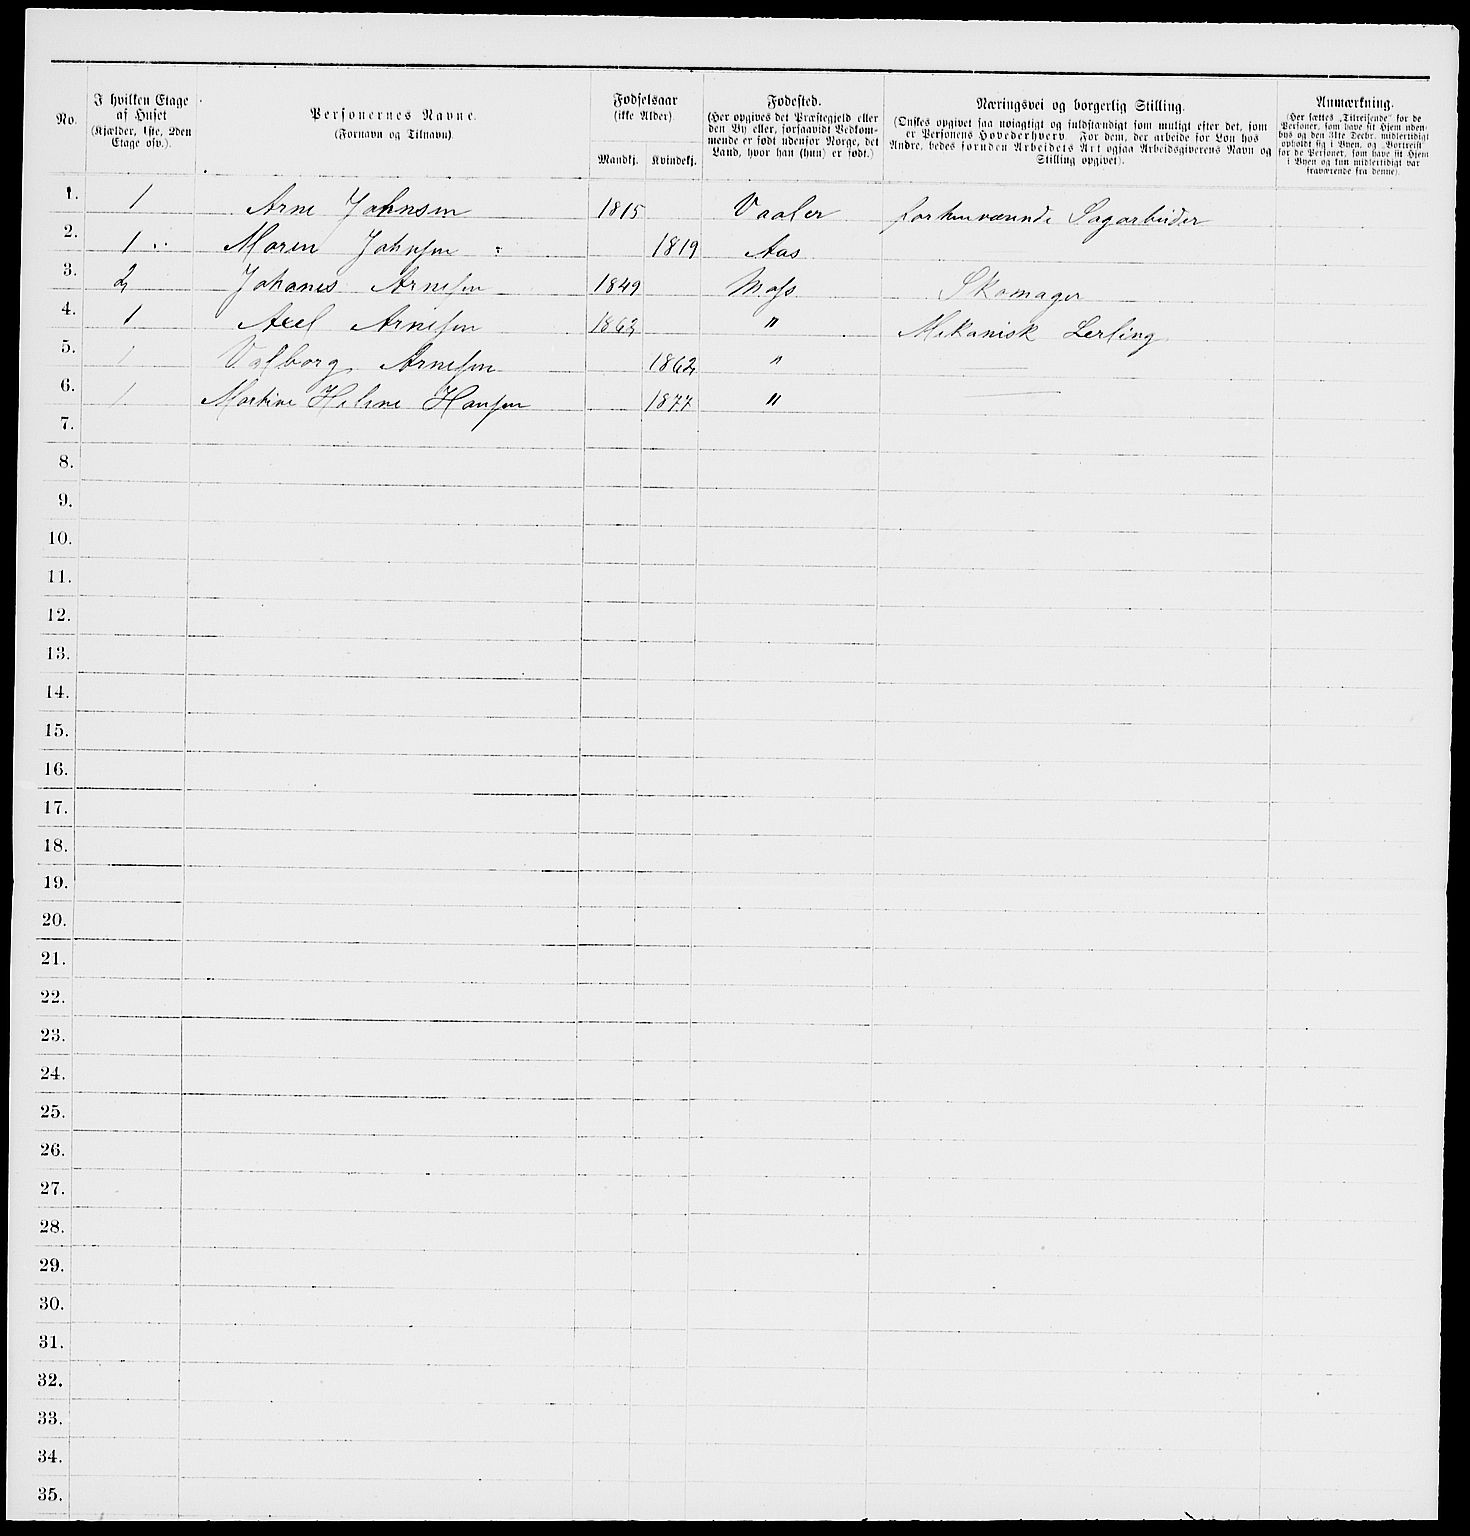 No.
I hvilken Etage
af Huset
(Kjælder, 1ste, 2den
Etage osv.).
Personernes Navne.
(Fornavn og Tilnavn)
Fødselsaar
(ikke Alder).
Mandkj. Kvindekj.
Fødested.
(Her opgives det Præstegjeld eller
den By eller, forsaavidt Vedkom-
mende er født udenfor Norge, det
Land, hvor han (hun) er født.)
Næringsvei og borgerlig Stilling.
(Ønskes opgivet saa nøiagtigt og fuldstændigt som muligt efter det, som
er Personens Hovederhverv. For dem, der arbeide for Løn hos
Andre, bedes foruden Arbeidets Art ogsaa Arbeidsgiverens Navn og
Stilling opgivet).
Anmærkning.
(Her sættes „Tilreisende“ for de
Personer, som have sit Hjem uden-
bys og den 31te Decbr. midlertidigt
opholdt sig i Byen, og „Bortreist“
for de Personer, som have sit Hjem
i Byen og kun midlertidigt var
fraværende fra denne).
1. 1 Arne Johnsen 1815 Vaaler forhenværende Sagarbeider
2. 1 Maren Johnsen 1819 Aas
3. 2 Johanes Arnesen 1849 Moss Skomager
4. 1 Axel Arnesen 1863 " Mekanisk Lerling
5. 1 Valborg Arnesen 1862 "
6. 1 Martine Heline Hansen 1877 "
7.
8.
9.
10.
11.
12.
13.
14.
15.
16.
17.
18.
19.
20.
21.
22.
23.
24.
25.
26.
27.
28.
29.
30.
31.
32.
33.
34.
35.